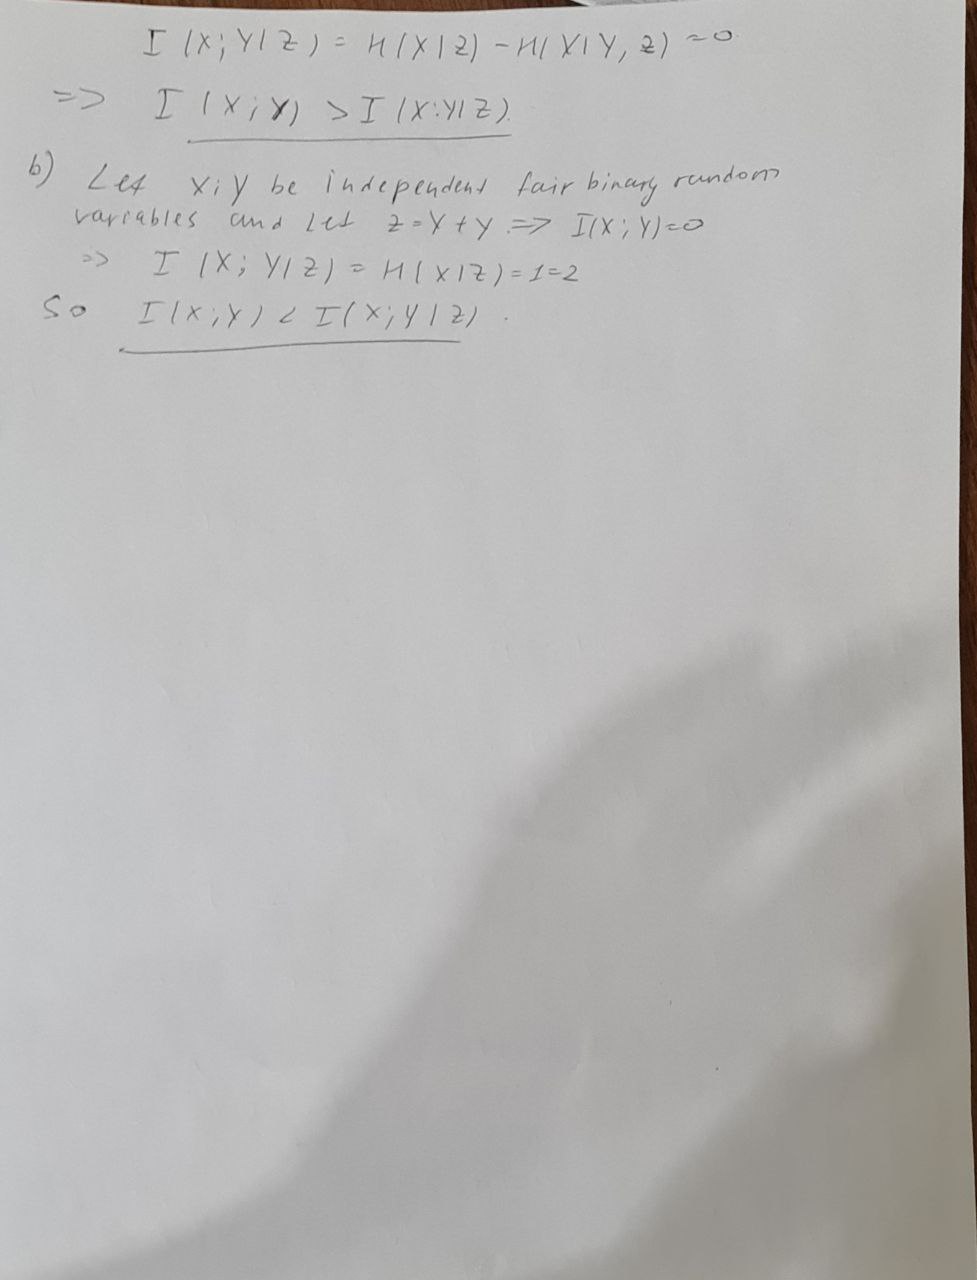 I(X;Y|Z) = H(X|Z) - H(X|Y,Z) = 0
=> I(X;Y) > I(X:Y|Z).
b) Let X;Y be independent fair binary random
variables and let Z=X+Y => I(X;Y)=0
=> I(X;Y|Z) = H(X|Z)=1=2
So I(X;Y) < I(X;Y|Z).